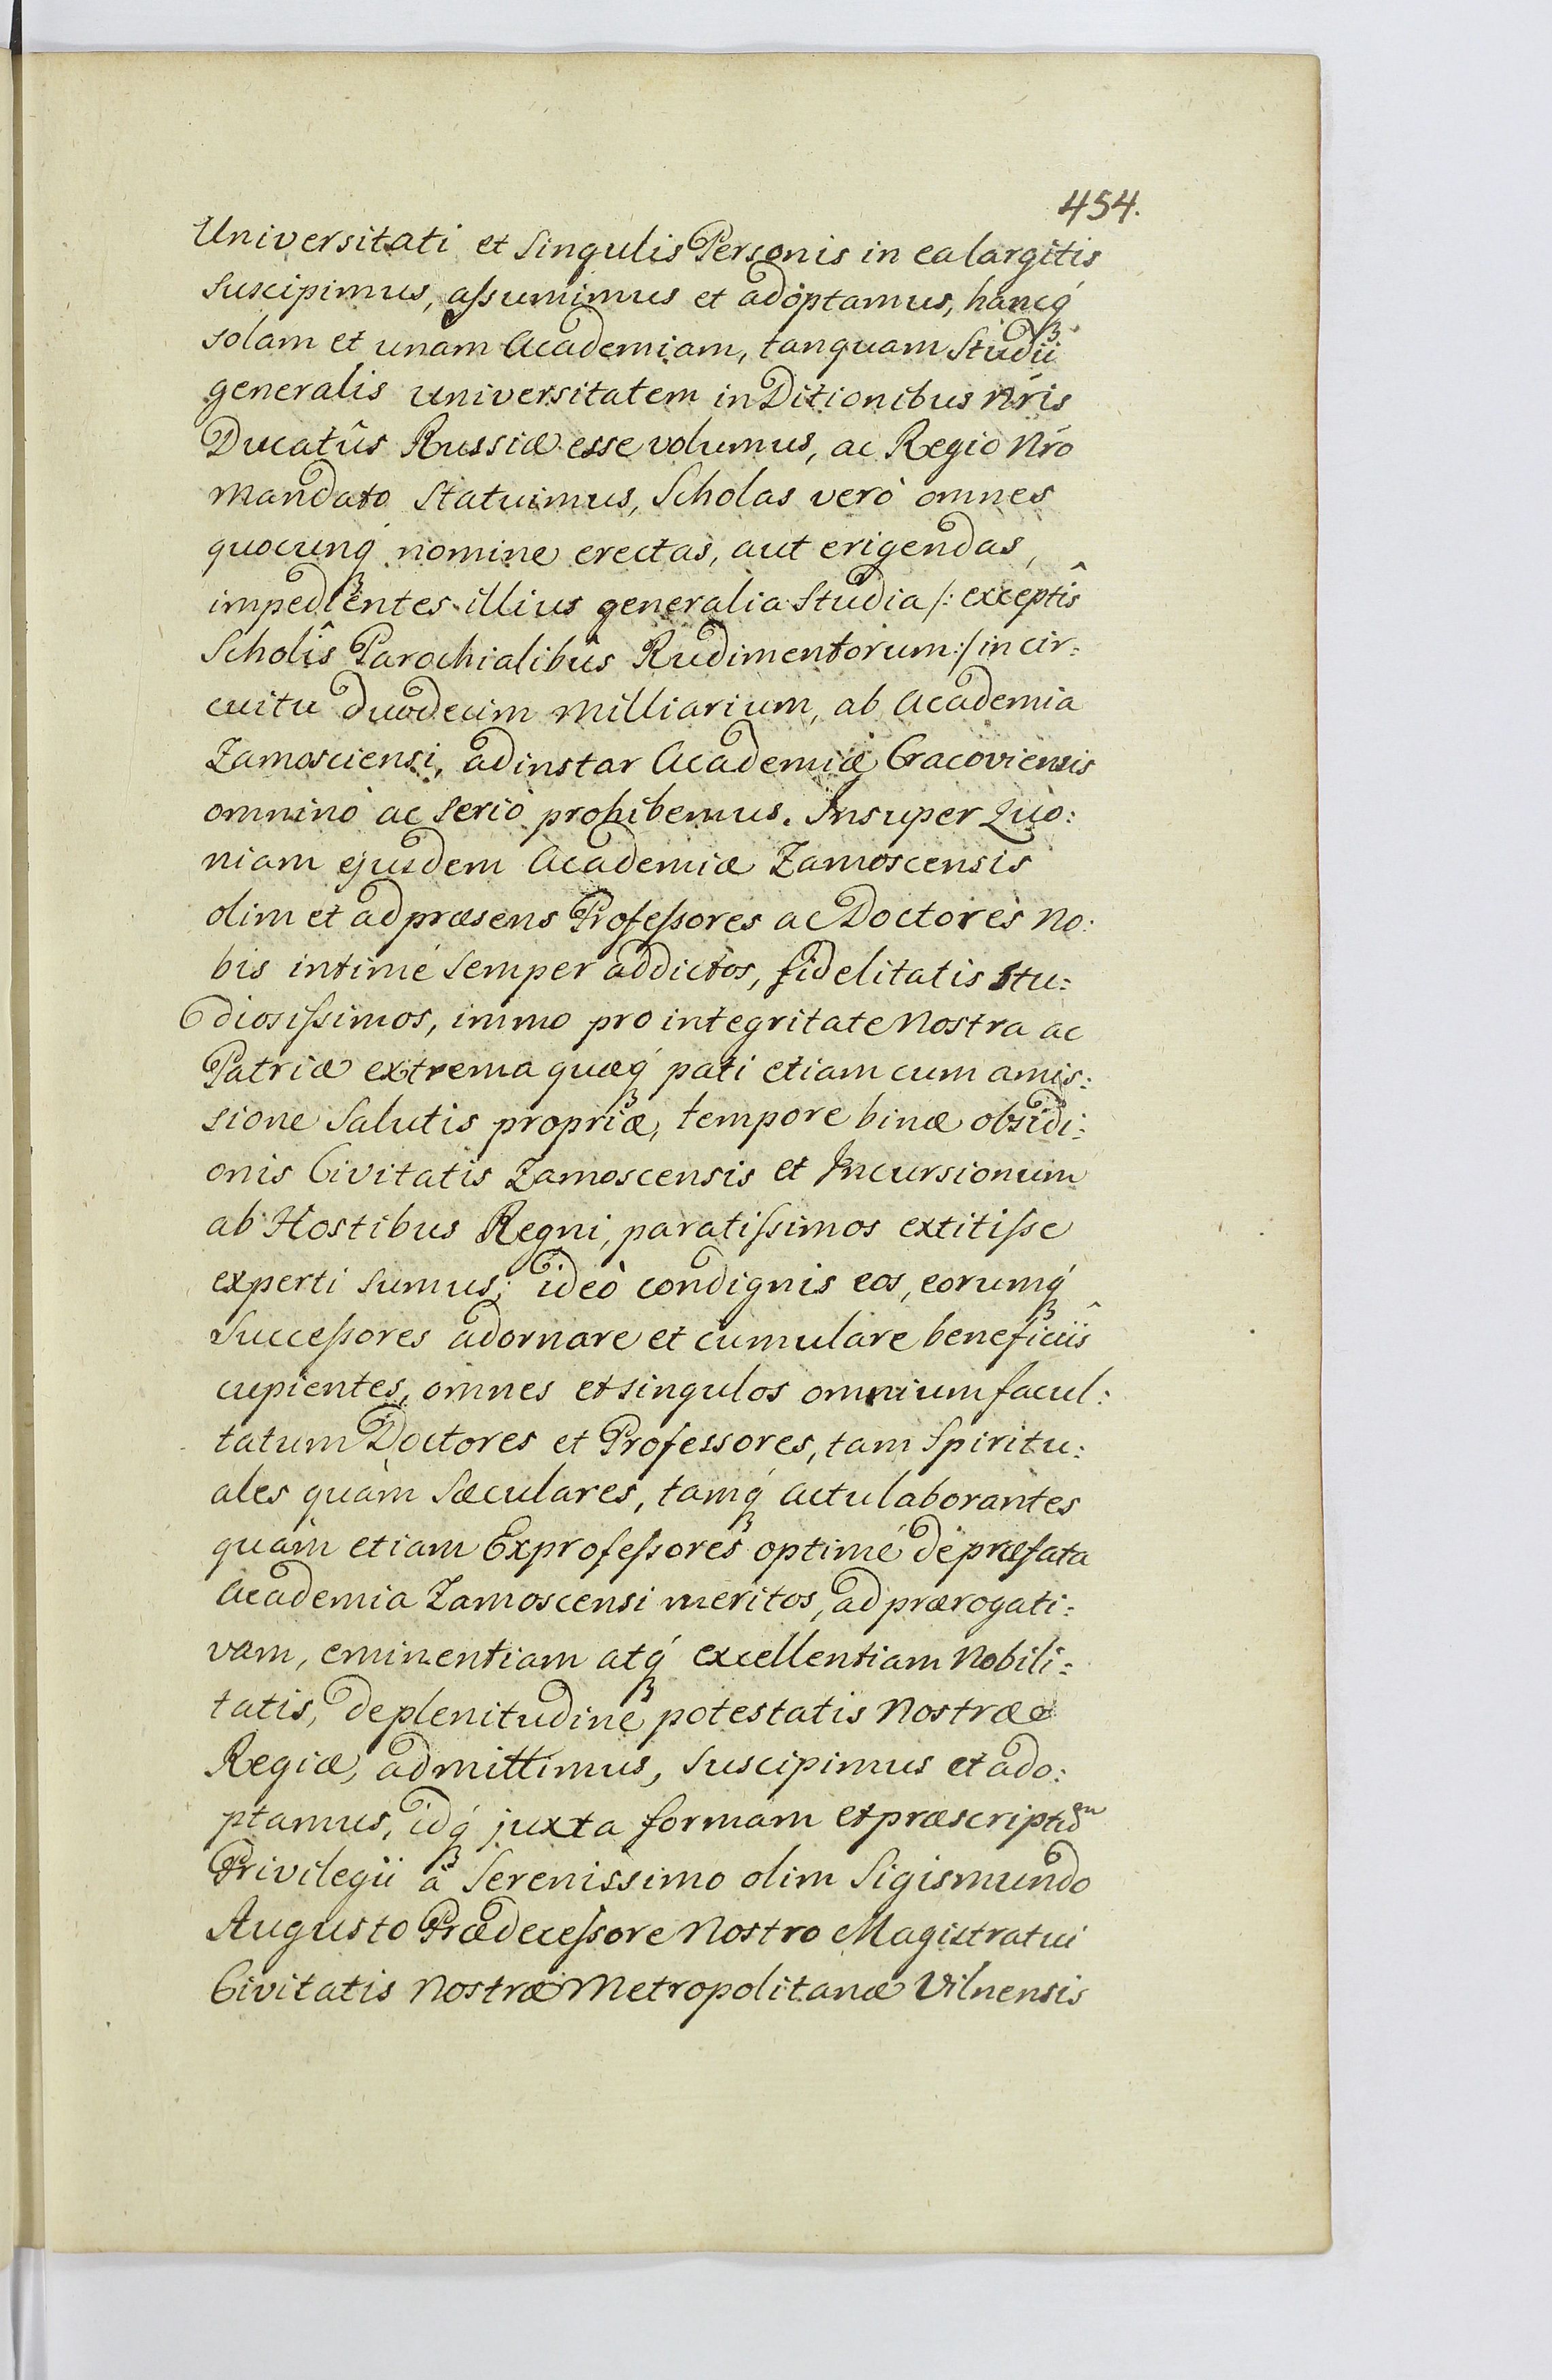 454.
Universitati et Singulis Personis in ea largitis
suscipimus, aſsumimus et adoptamus, hancq́ꝫ
solam et unam Academiam, tanquam Studii
generalis universitatem in Ditionibus Nr̃is
Ducatûs Russiæ esse volumus, ac Regio Nr̃o
mandato statuimus, Scholas verò omnes
quocunq́ꝫ nomine erectas, aut erigendas,
impedientes illius generalia Studia /: exceptîs
Scholîs Parochialibûs Rudimentorum :/ in cir=
cuitu duodecim milliarium, ab Academia
Zamosciensi, ad instar Academiæ Cracoviensis
omninò ac seriò prohibemus. Insuper Quo:
niam ejusdem Academiæ Zamoscensis
olim et ad præsens Profeſsores ac Doctores No:
bis intimé semper addictos, fidelitatis stu=
dioſissimos, immo pro integritate Nostra ac
Patriæ extrema quæq́ꝫ pati etiam cum amis:
sione Salutis propriæ, tempore binæ obsidi:
onis Civitatis Zamoscensis et Incursionum
ab Hostibus Regni, paratiſsimos extitiſse
experti sumus; ideò condignis eos, eorumq́ꝫ
Succeſsores adornare et cumulare beneficiîs
cupientes, omnes et singulos omnium facul:
tatum Doctores et Professores, tam Spiritu:
ales quàm Sæculares, tamq́ꝫ actu laborantes
quàm etiam Exprofeſsores optimé de præfata
Academia Zamoscensi meritos, ad prærogati=
vam, eminentiam atq́ꝫ excellentiam Nobili=
tatis, de plenitudine potestatis Nostræ
Regiæ, admittimus, suscipimus et ado:
ptamus, idq́ꝫ juxta formam et præscription
Privilegii à Serenissimo olim Sigismundo
Augusto Prædeceſsore Nostro Magistratui
Civitatis Nostræ Metropolitanæ Vilnensis